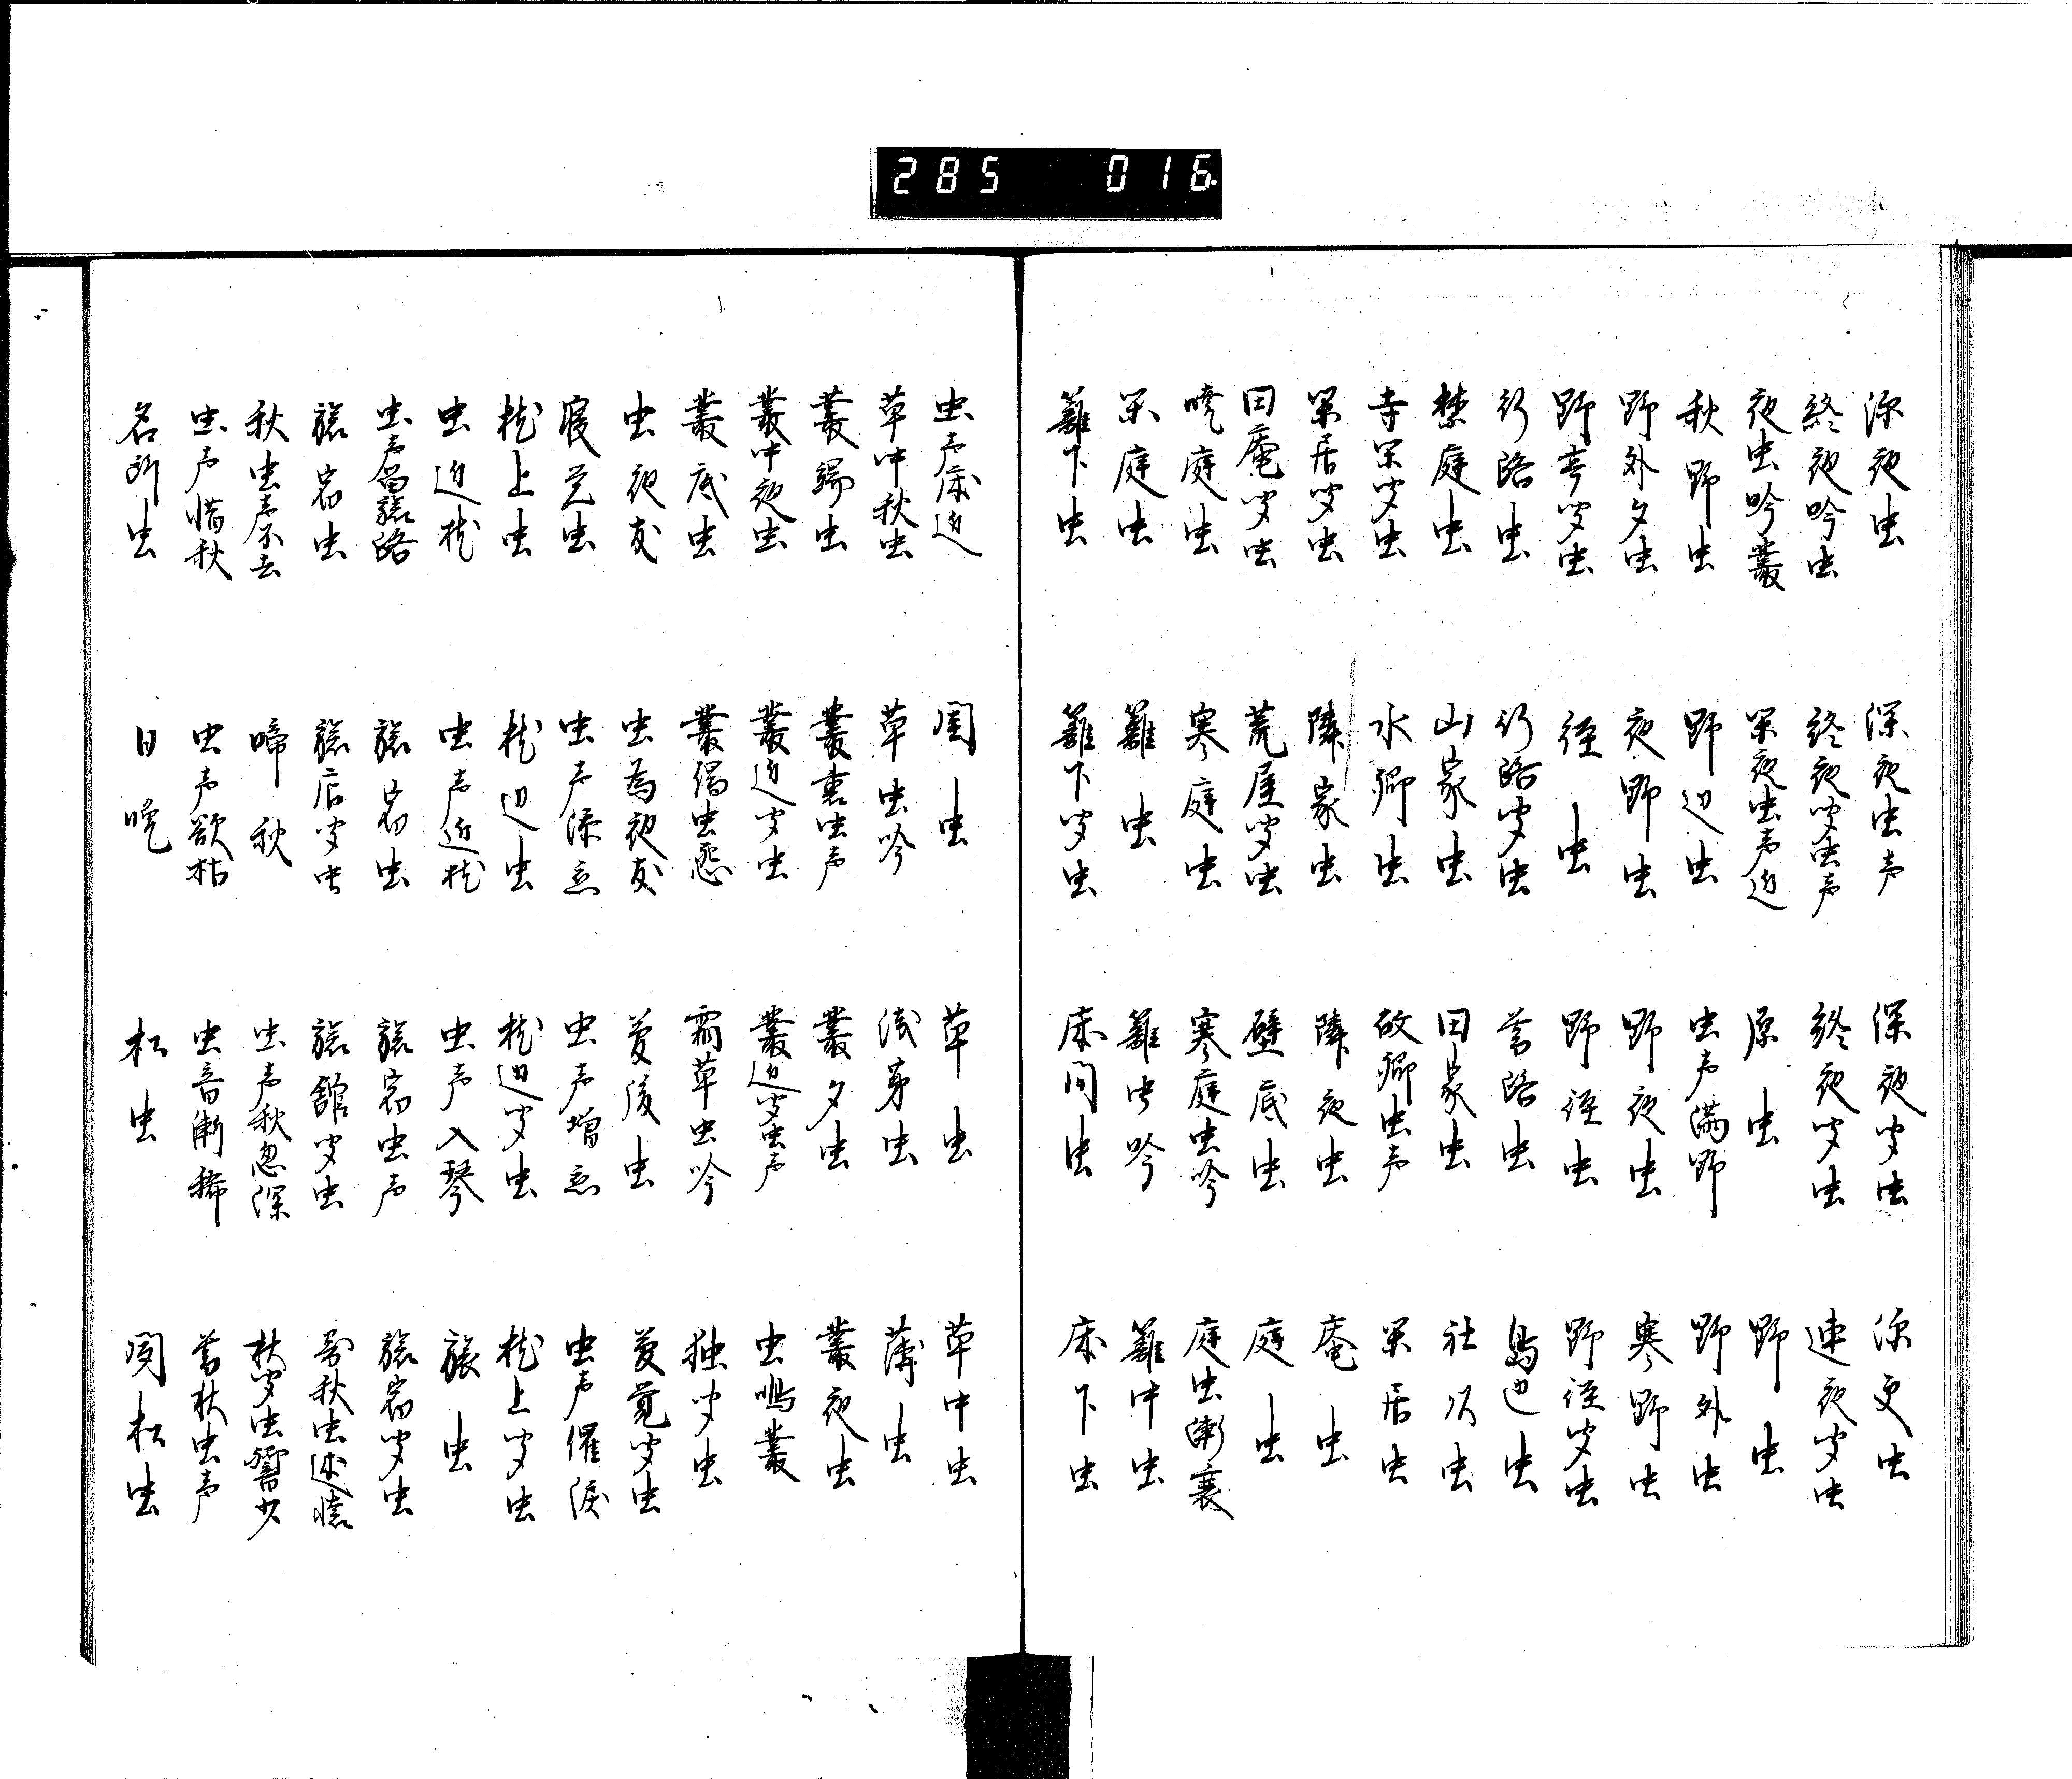 285 016
深夜虫 深夜虫声 深夜聞虫 深更虫
終夜吟虫 終夜聞虫声 終夜聞虫 連夜聞虫
夜虫吟叢 閑夜虫声近 原虫 野虫
秋野虫 野辺虫 虫声満野 野外虫
野外夕虫 夜野虫 野夜虫 寒野虫
野亭聞虫 径虫 野径虫 野径聞虫
行路虫 行路聞虫 路虫 島辺虫
禁庭虫 山家虫 田家虫 社頭虫
寺閑聞虫 水郷虫 故郷虫声 閑居虫
閑居聞虫 隣家虫 隣夜虫 庵虫
田庵聞虫 荒屋聞虫 壁底虫 庭虫
暁庭虫 寒庭虫 寒庭虫吟 庭虫漸衰
閑庭虫 籬虫 籬虫吟 籬中虫
籬下虫 籬下聞虫 床間虫 床下虫
虫声床近 閨虫 草虫 草中虫
草中秋虫 草虫吟 浅茅虫 薄虫
叢端虫 叢裏虫声 叢夕虫 叢夜虫
叢中夜虫 叢近聞虫 叢辺聞虫声 虫鳴叢
叢底虫 叢虫怨 霜草虫吟 独聞虫
虫夜友 虫為夜友 夢後虫 夢覚聞虫
寝覚虫 虫声添恋 虫声増恋 虫声催涙
枕上虫 枕辺虫 枕辺聞虫 枕上聞虫
虫近枕 虫声近枕 虫声入琴 旅虫
虫声旅路 旅宿虫 旅宿虫声 旅宿聞虫
旅宿虫 旅店聞虫 旅館聞虫 秋虫述懐
秋虫声不去 啼秋 虫声秋忽深 秋聞虫響少
虫声惜秋 虫声欲枯 虫音漸稀 暮秋虫声
名所虫 日晩 松虫 聞松虫